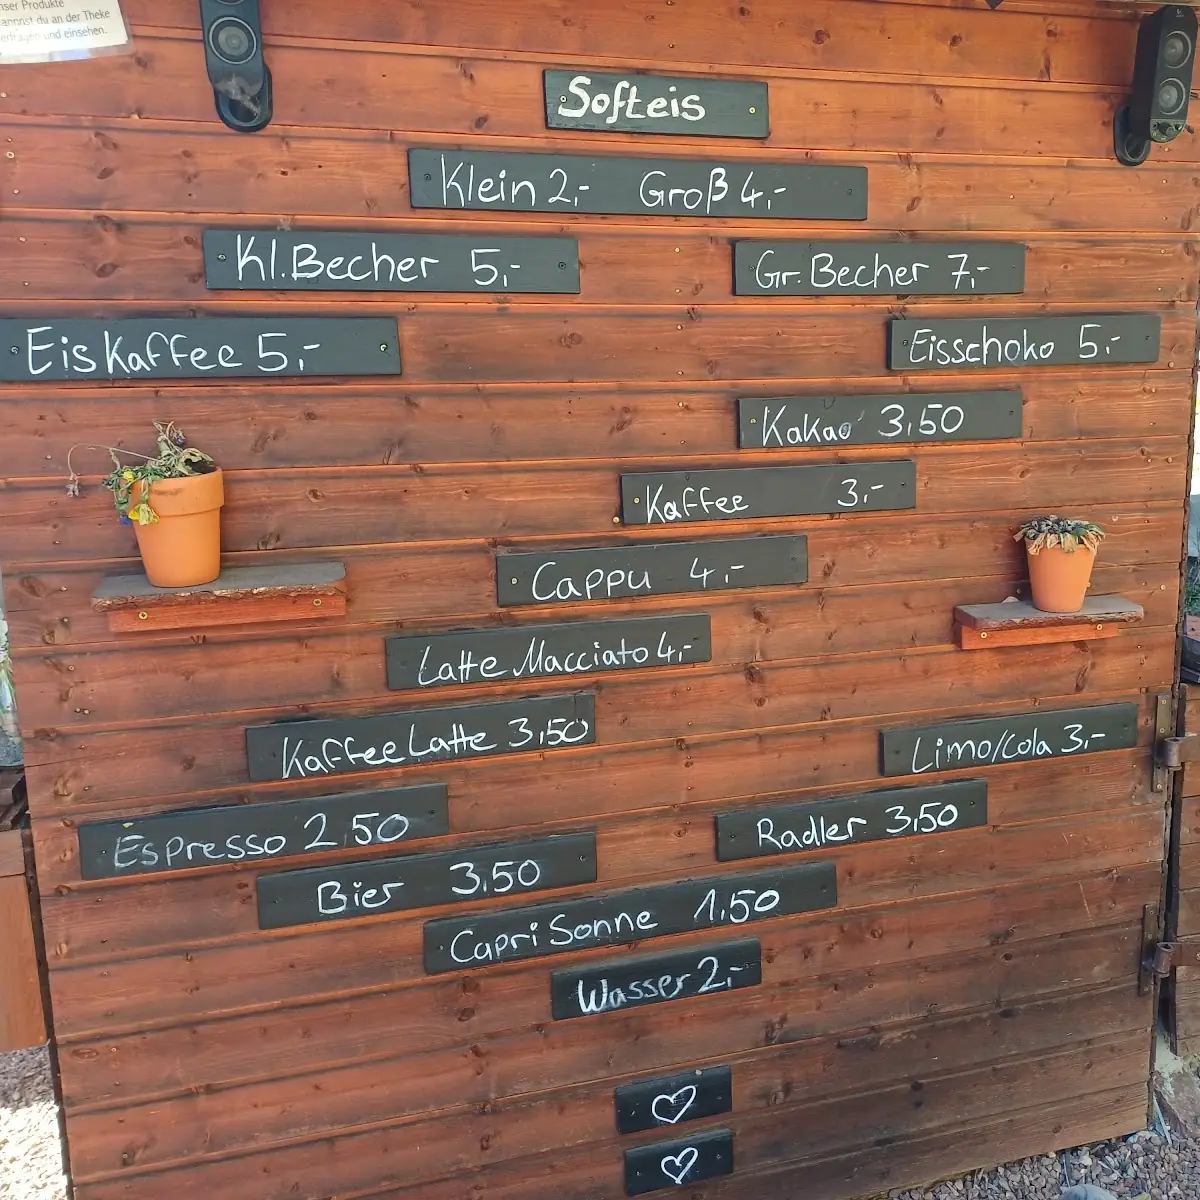 nser Produkte
kannst du an der Theke
erfragen und einsehen.
Softeis
Klein 2,- Groß 4,-
Kl. Becher 5,-
Gr. Becher 7,-
Eiskaffee 5,-
Eisschoko 5,-
Kakao 3,50
Kaffee 3,-
Cappu 4,-
Latte Macciato 4,-
Kaffee Latte 3,50
Limo/Cola 3,-
Espresso 2 50
Radler 3,50
Bier 3,50
Capri Sonne 1,50
Wasser 2,-